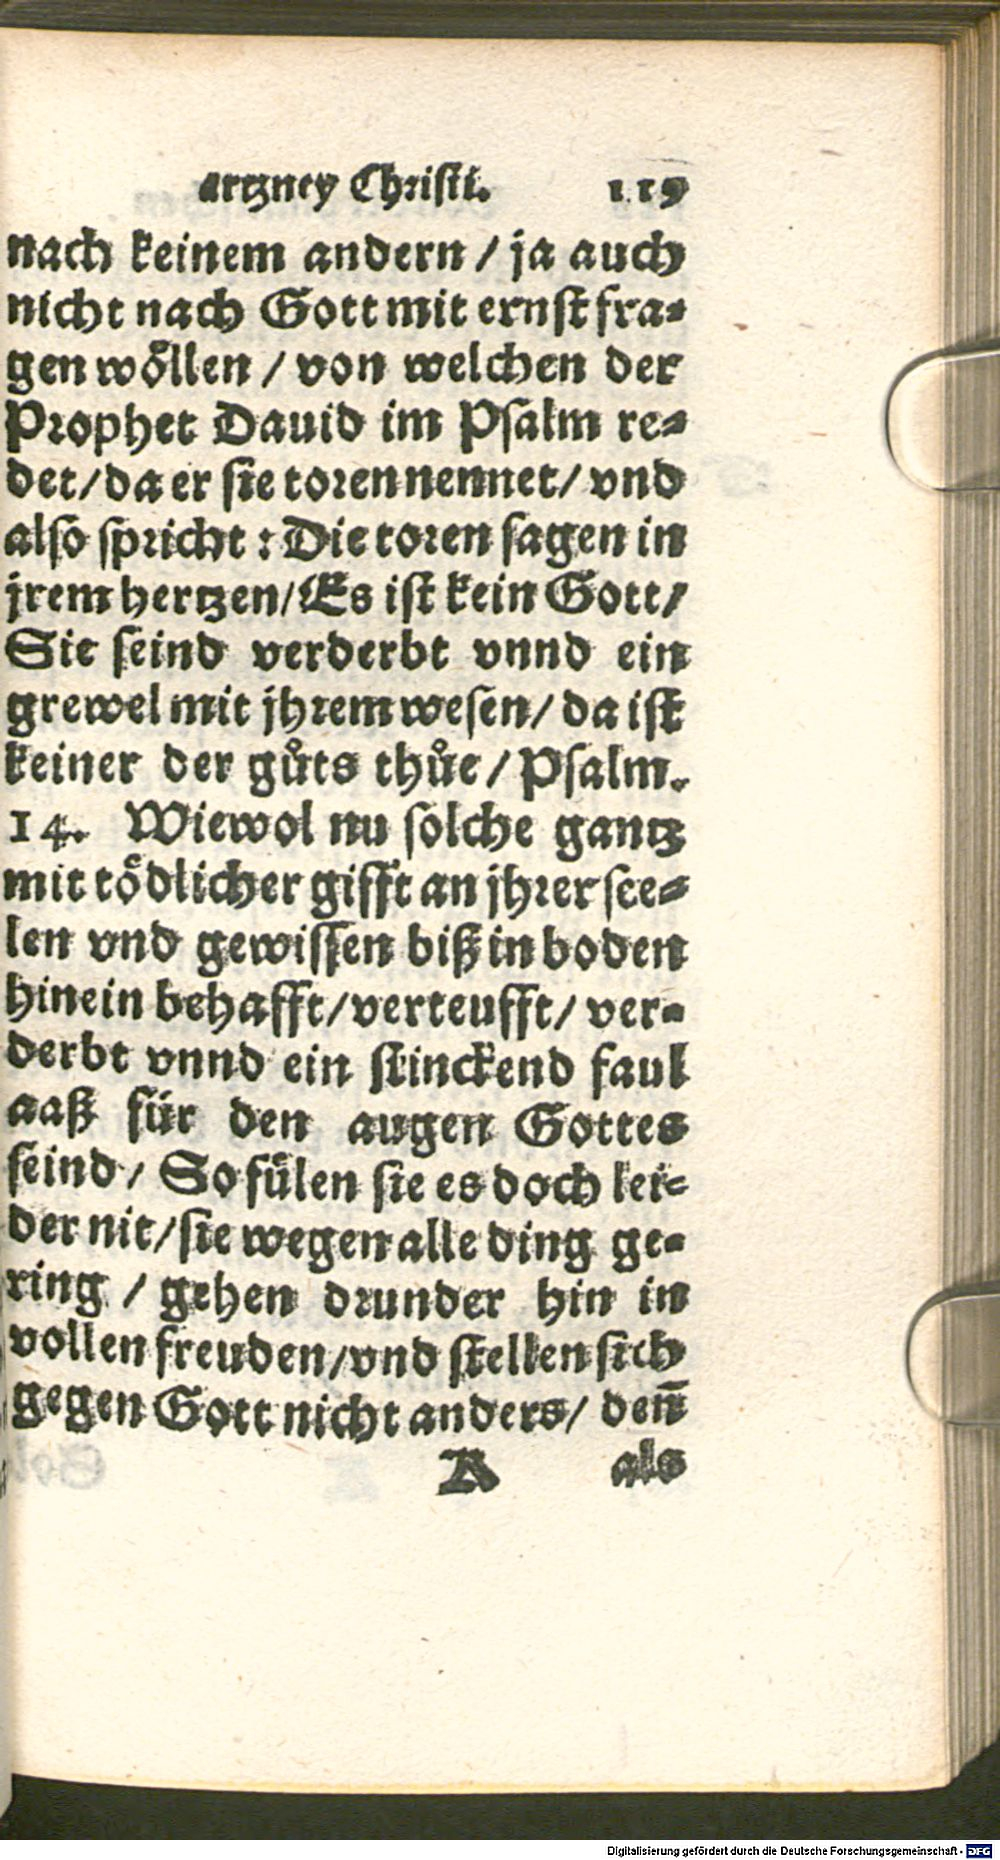 artzney Christi. 119
nach keinem andern / ja auch
nicht nach Gott mit ernst fra-
gen woͤllen / von welchen der
Prophet Dauid im Psalm re-
det / da er sie toren nennet / vnd
also spricht : Die toren sagen in
jrem hertzen / Es ist kein Gott /
Sie seind verderbt vnnd ein
grewel mit jhrem wesen / da ist
keiner der guͦts thuͦe / Psalm.
14. Wiewol nu solche gantz
mit toͤdlicher gifft an jhrer see-
len vnd gewissen biß in boden
hinein behafft / verteufft / ver-
derbt vnnd ein stinckend faul
aaß für den augen Gottes
seind / So fuͤlen sie es doch lei-
der nit / sie wegen alle ding ge-
ring / gehen drunder hin in
vollen freuden / vnd stellen sich
gegen Gott nicht anders / den̄
A als
Digitalisierung gefördert durch die Deutsche Forschungsgemeinschaft - DFG